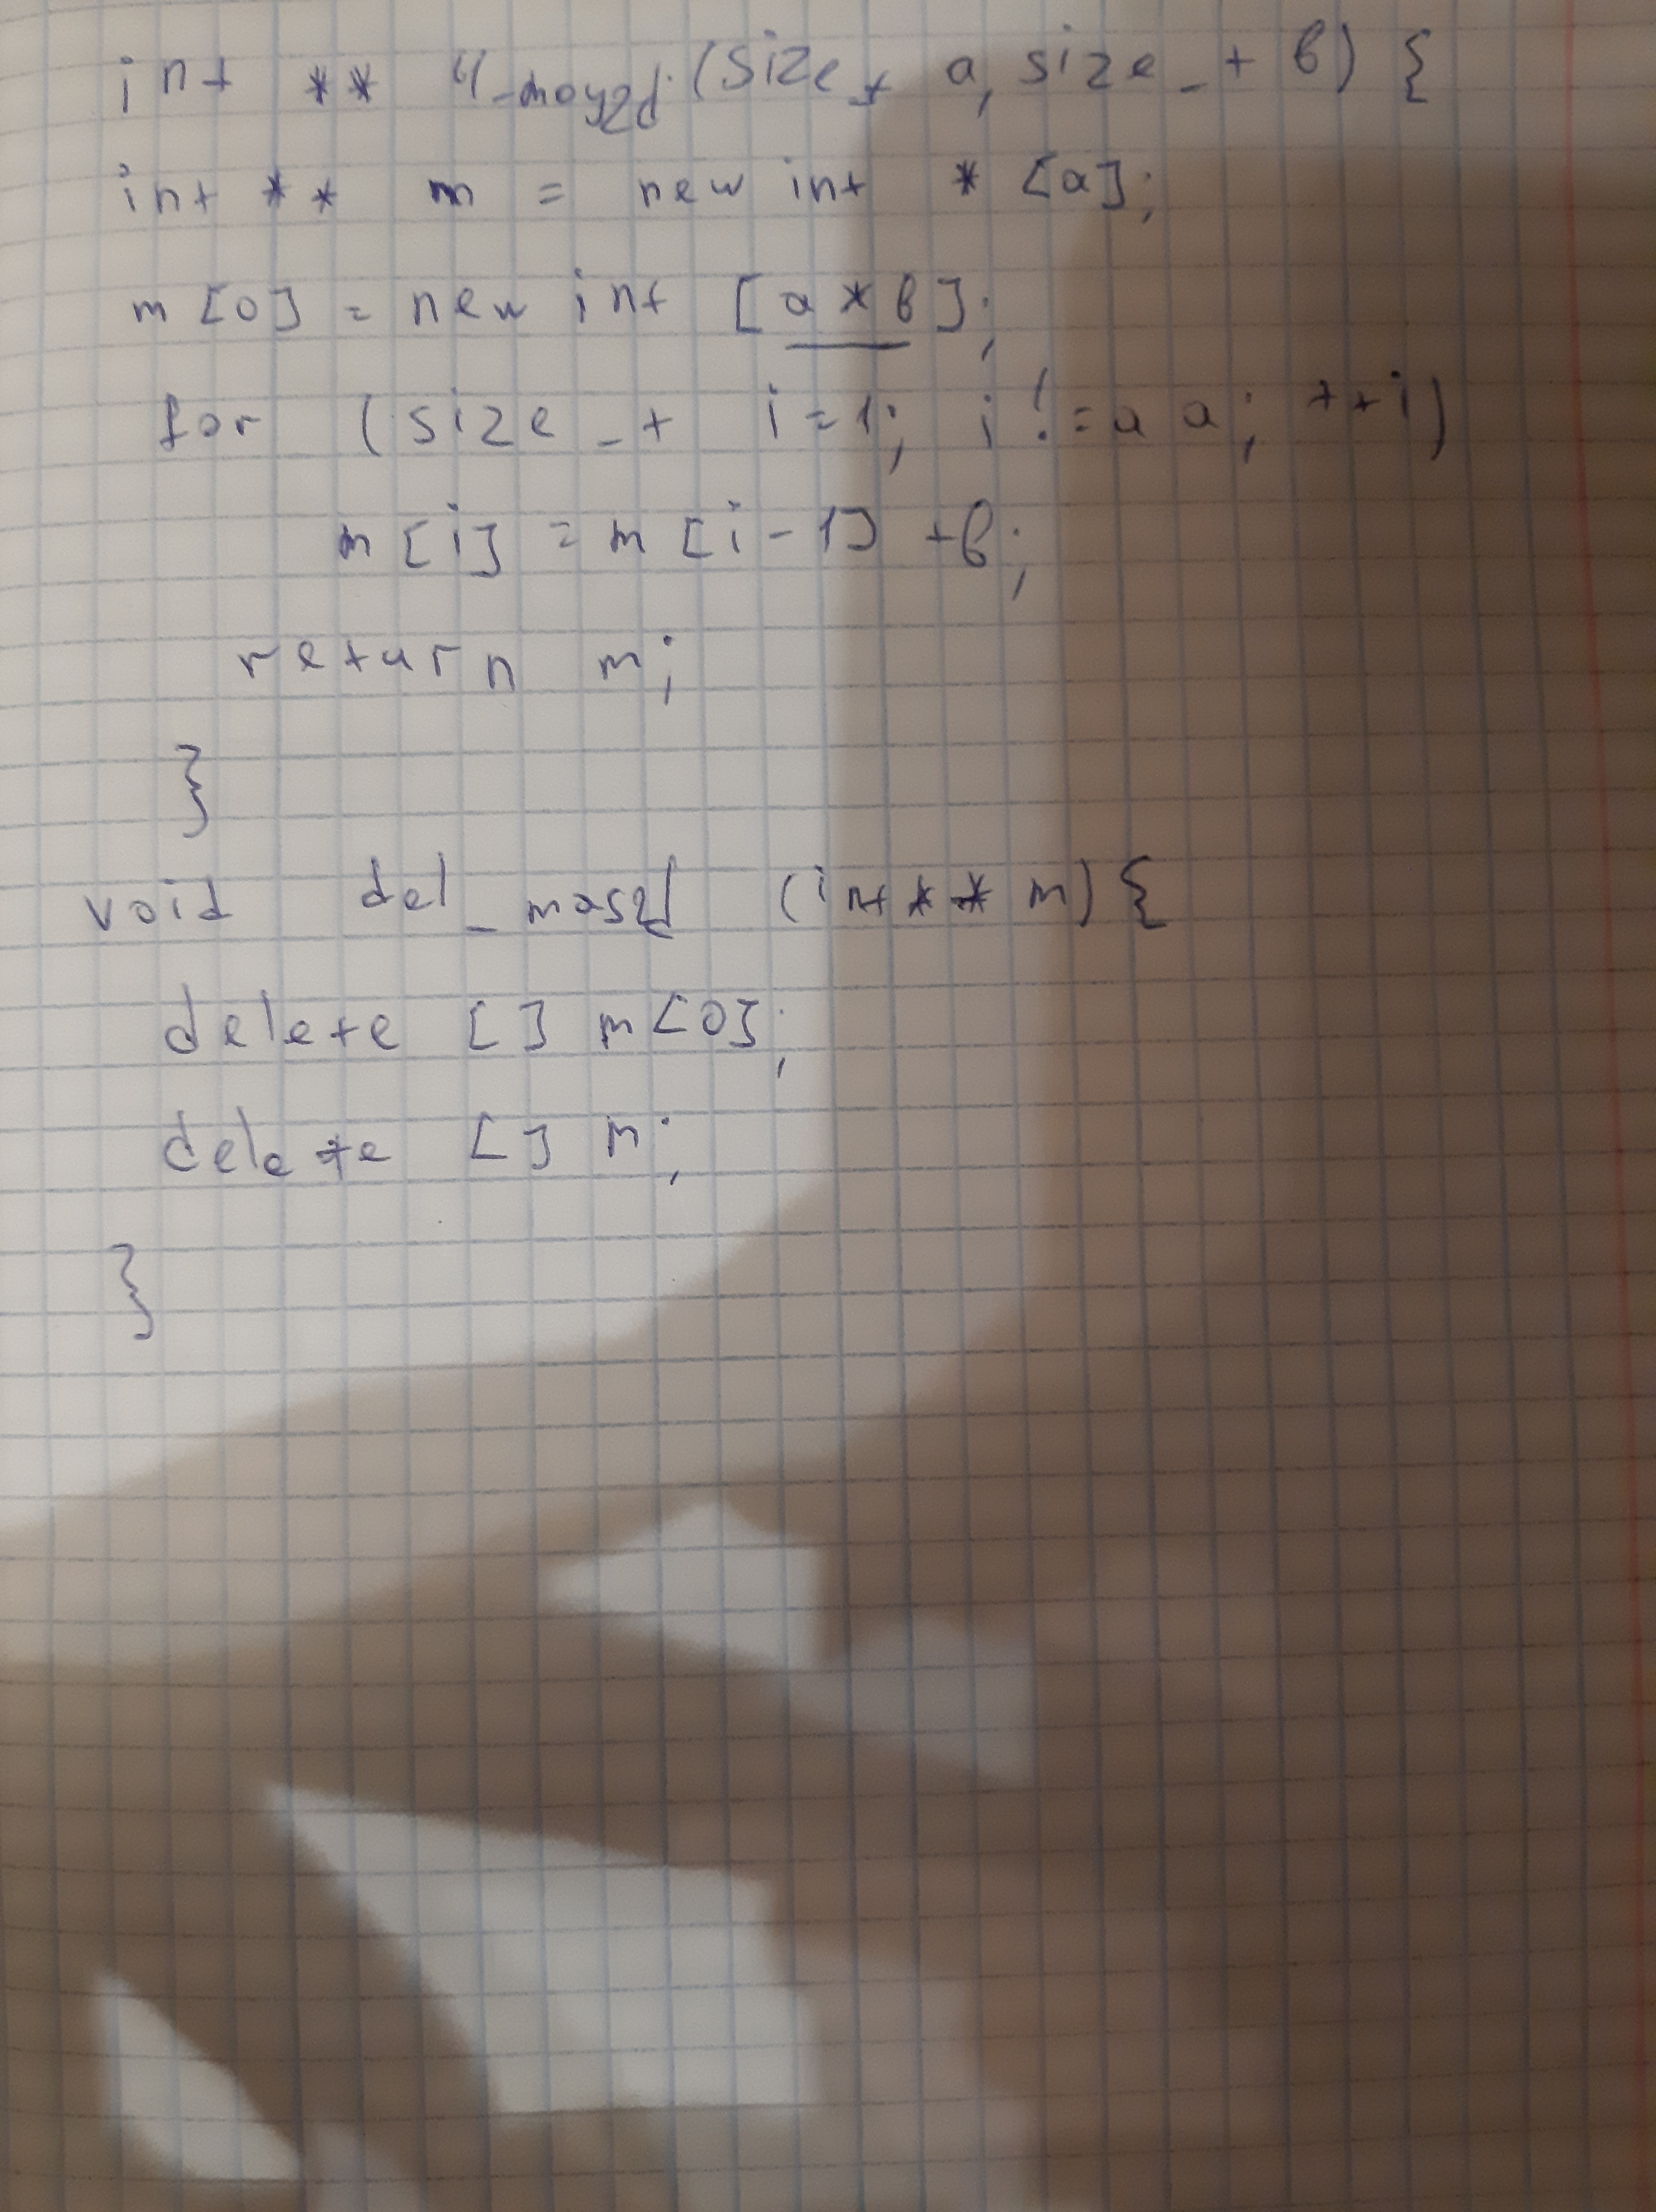 int ** (size_t a, size_t b) {
int ** m = new int * [a];
m [0] = new int [a * b];
for (size_t i=1; i != a a; ++i)
m [i] = m [i-1] +b;
return m;
}
void del_mas2d (int** m) {
delete [] m[0];
delete [] m;
}